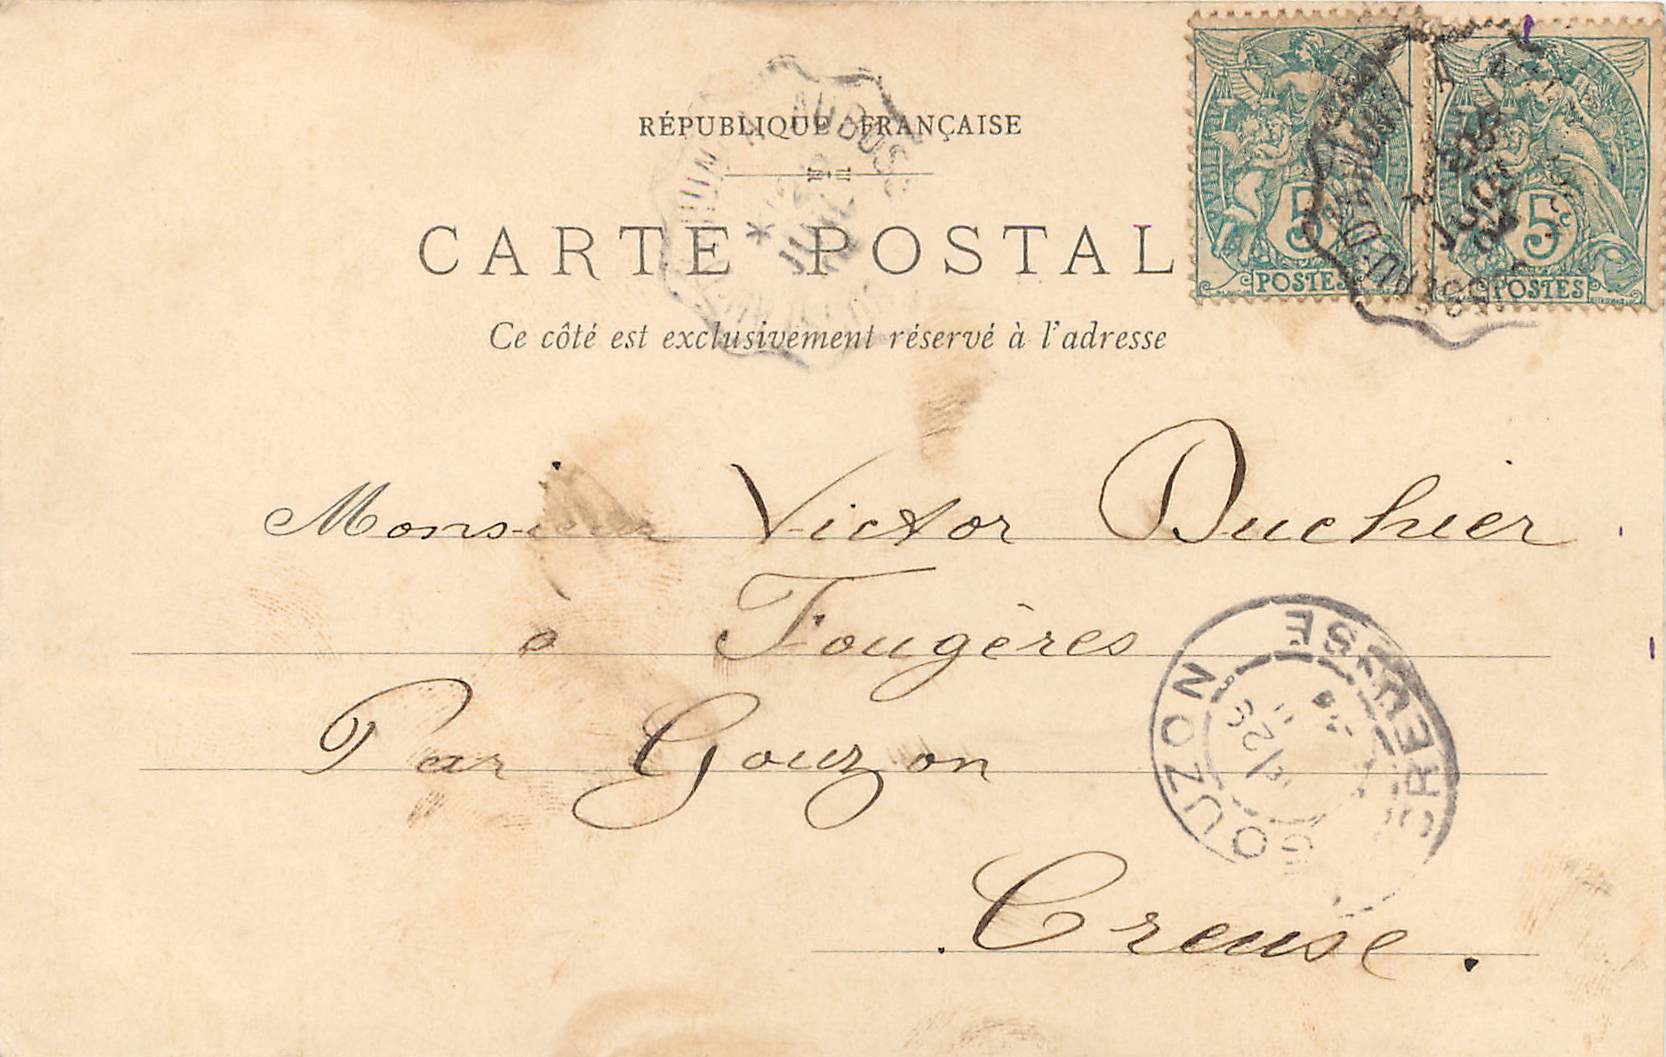 RÉPUBLIQUE FRANÇAISE
CARTE POSTAL
Ce côté est exclusivement réservé à l'adresse
5 5
POSTES POSTES
Monsieur Victor Duchier
à Fougères
Par Gouzon
Creuse.
GOUZON CREUSE